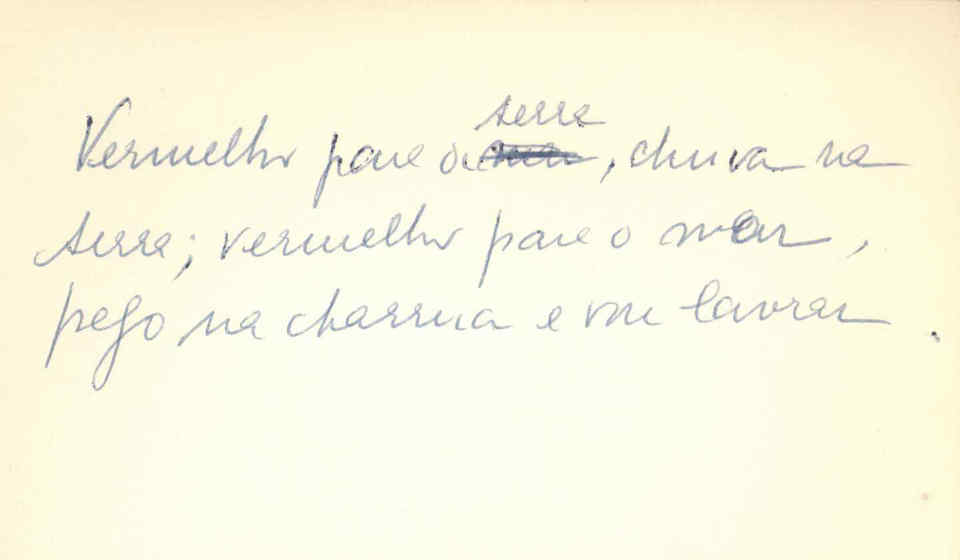 serra
Vermelho para a mar, chuva na
terra; vermelho para o mar,
pego na charrua e vou lavrar.